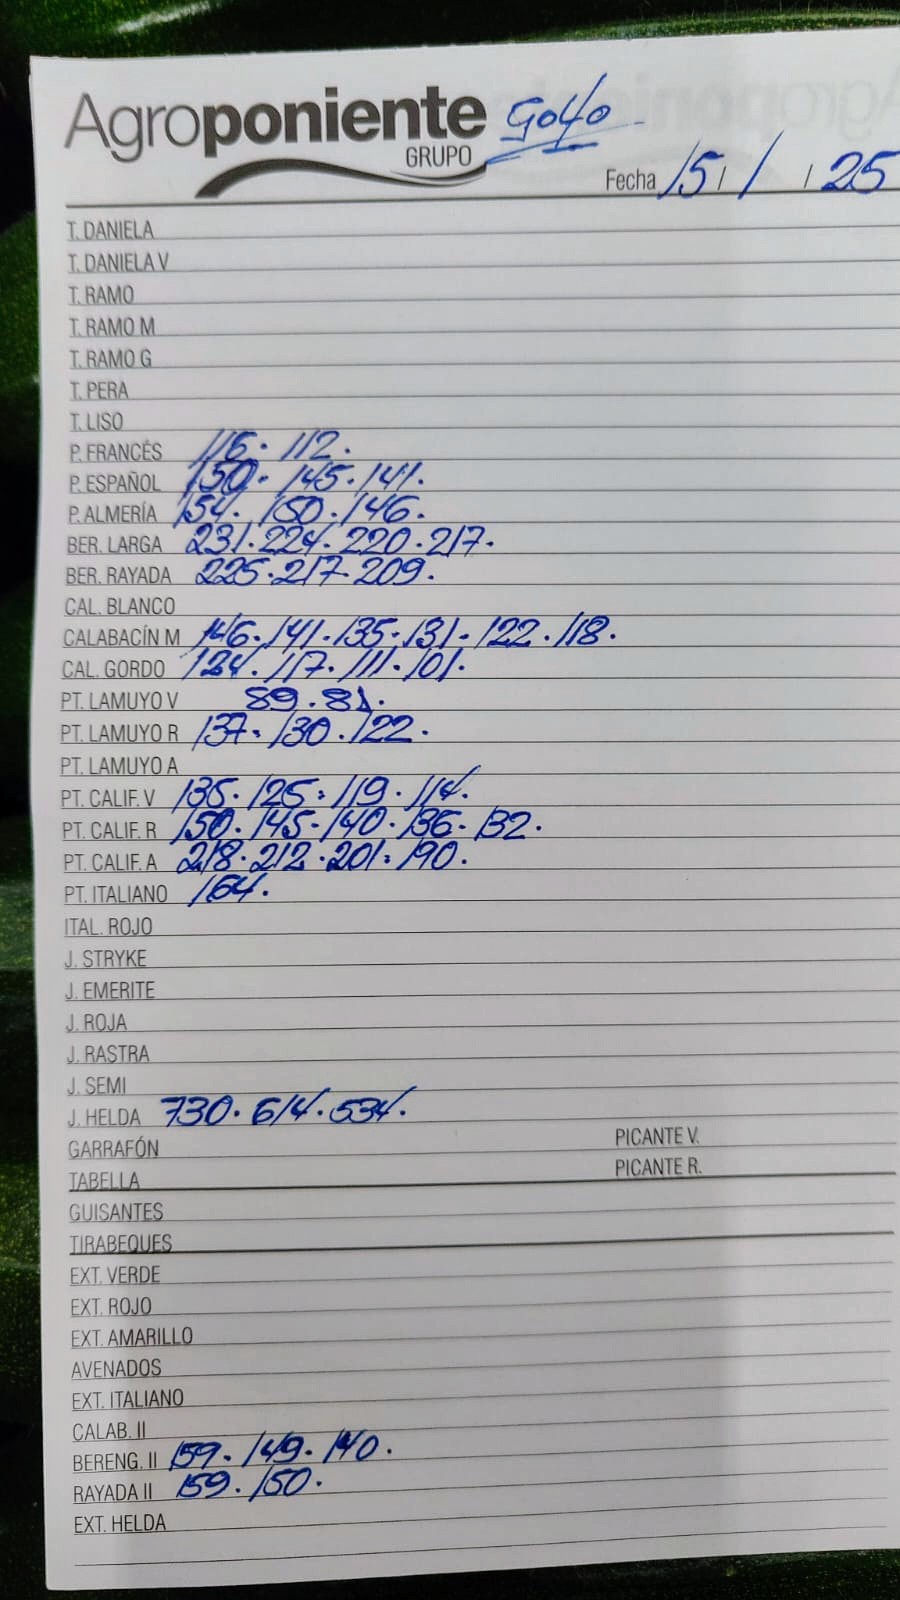 Agroponiente Golfo
GRUPO
Fecha 15 / 1 / 25
T. DANIELA
T. DANIELA V
T. RAMO
T. RAMO M
T. RAMO G
T. PERA
T. LISO
P. FRANCÉS 116. 112.
P. ESPAÑOL 150. 145. 141.
P. ALMERÍA 154. 150. 146.
BER. LARGA 231. 224. 220. 217.
BER. RAYADA 225. 217. 209.
CAL. BLANCO
CALABACÍN M 146. 141. 135. 131. 122. 118.
CAL. GORDO 124. 117. 111. 101.
PT. LAMUYO V 89. 81.
PT. LAMUYO R 137. 130. 122.
PT. LAMUYO A
PT. CALIF. V 135. 125. 119. 114.
PT. CALIF. R 150. 145. 140. 136. 132.
PT. CALIF. A 218. 212. 201. 190.
PT. ITALIANO 164.
ITAL. ROJO
J. STRYKE
J. EMERITE
J. ROJA
J. RASTRA
J. SEMI
J. HELDA 730. 614. 534.
GARRAFÓN PICANTE V.
TABELLA PICANTE R.
GUISANTES
TIRABEQUES
EXT. VERDE
EXT. ROJO
EXT. AMARILLO
AVENADOS
EXT. ITALIANO
CALAB. II
BERENG. II 159. 149. 140.
RAYADA II 159. 150.
EXT. HELDA